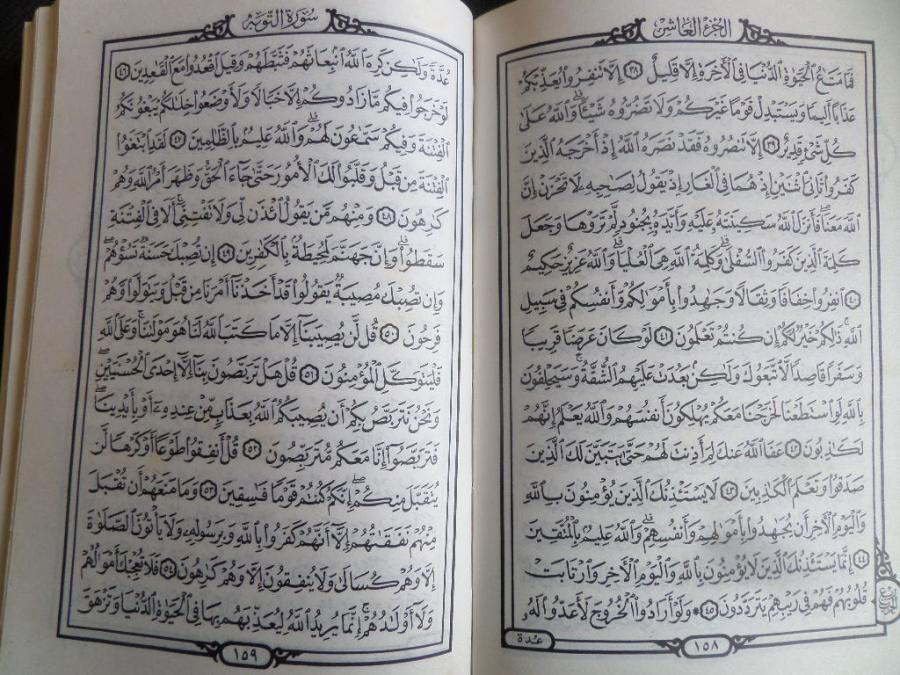 الجزء العاشر
فَمَا مَتَٰعُ ٱلْحَيَوٰةِ ٱلدُّنْيَا فِى ٱلْأَخِرَةِ إِلَّا قَلِيلٌ ٣٨ إِلَّا تَنفِرُوا۟ يُعَذِّبْكُمْ
عَذَابًا أَلِيمًا وَيَسْتَبْدِلْ قَوْمًا غَيْرَكُمْ وَلَا تَضُرُّوهُ شَيْـًٔا وَٱللَّهُ عَلَىٰ
كُلِّ شَىْءٍ قَدِيرٌ ٣٩ إِلَّا تَنصُرُوهُ فَقَدْ نَصَرَهُ ٱللَّهُ إِذْ أَخْرَجَهُ ٱلَّذِينَ
كَفَرُوا۟ ثَانِىَ ٱثْنَيْنِ إِذْ هُمَا فِى ٱلْغَارِ إِذْ يَقُولُ لِصَٰحِبِهِۦ لَا تَحْزَنْ إِنَّ
ٱللَّهَ مَعَنَا فَأَنزَلَ ٱللَّهُ سَكِينَتَهُۥ عَلَيْهِ وَأَيَّدَهُۥ بِجُنُودٍ لَّمْ تَرَوْهَا وَجَعَلَ
كَلِمَةَ ٱلَّذِينَ كَفَرُوا۟ ٱلسُّفْلَىٰ وَكَلِمَةُ ٱللَّهِ هِىَ ٱلْعُلْيَا وَٱللَّهُ عَزِيزٌ حَكِيمٌ
٤٠ ٱنفِرُوا۟ خِفَافًا وَثِقَالًا وَجَٰهِدُوا۟ بِأَمْوَٰلِكُمْ وَأَنفُسِكُمْ فِى سَبِيلِ
ٱللَّهِ ذَٰلِكُمْ خَيْرٌ لَّكُمْ إِن كُنتُمْ تَعْلَمُونَ ٤١ لَوْ كَانَ عَرَضًا قَرِيبًا
وَسَفَرًا قَاصِدًا لَّٱتَّبَعُوكَ وَلَٰكِنۢ بَعُدَتْ عَلَيْهِمُ ٱلشُّقَّةُ وَسَيَحْلِفُونَ
بِٱللَّهِ لَوِ ٱسْتَطَعْنَا لَخَرَجْنَا مَعَكُمْ يُهْلِكُونَ أَنفُسَهُمْ وَٱللَّهُ يَعْلَمُ إِنَّهُمْ
لَكَٰذِبُونَ ٤٢ عَفَا ٱللَّهُ عَنكَ لِمَ أَذِنتَ لَهُمْ حَتَّىٰ يَتَبَيَّنَ لَكَ ٱلَّذِينَ
صَدَقُوا۟ وَتَعْلَمَ ٱلْكَٰذِبِينَ ٤٣ لَا يَسْتَـْٔذِنُكَ ٱلَّذِينَ يُؤْمِنُونَ بِٱللَّهِ
وَٱلْيَوْمِ ٱلْأَخِرِ أَن يُجَٰهِدُوا۟ بِأَمْوَٰلِهِمْ وَأَنفُسِهِمْ وَٱللَّهُ عَلِيمٌۢ بِٱلْمُتَّقِينَ
٤٤ إِنَّمَا يَسْتَـْٔذِنُكَ ٱلَّذِينَ لَا يُؤْمِنُونَ بِٱللَّهِ وَٱلْيَوْمِ ٱلْأَخِرِ وَٱرْتَابَتْ
قُلُوبُهُمْ فَهُمْ فِى رَيْبِهِمْ يَتَرَدَّدُونَ ٤٥ وَلَوْ أَرَادُوا۟ ٱلْخُرُوجَ لَأَعَدُّوا۟ لَهُۥ
عدة
١٥٨
سورة التوبة
عُدَّةً وَلَٰكِن كَرِهَ ٱللَّهُ ٱنۢبِعَاثَهُمْ فَثَبَّطَهُمْ وَقِيلَ ٱقْعُدُوا۟ مَعَ ٱلْقَٰعِدِينَ ٤٦
لَوْ خَرَجُوا۟ فِيكُم مَّا زَادُوكُمْ إِلَّا خَبَالًا وَلَأَوْضَعُوا۟ خِلَٰلَكُمْ يَبْغُونَكُمُ
ٱلْفِتْنَةَ وَفِيكُمْ سَمَّٰعُونَ لَهُمْ وَٱللَّهُ عَلِيمٌۢ بِٱلظَّٰلِمِينَ ٤٧ لَقَدِ ٱبْتَغَوُا۟
ٱلْفِتْنَةَ مِن قَبْلُ وَقَلَّبُوا۟ لَكَ ٱلْأُمُورَ حَتَّىٰ جَآءَ ٱلْحَقُّ وَظَهَرَ أَمْرُ ٱللَّهِ وَهُمْ
كَٰرِهُونَ ٤٨ وَمِنْهُم مَّن يَقُولُ ٱئْذَن لِّى وَلَا تَفْتِنِّى أَلَا فِى ٱلْفِتْنَةِ
سَقَطُوا۟ وَإِنَّ جَهَنَّمَ لَمُحِيطَةٌۢ بِٱلْكَٰفِرِينَ ٤٩ إِن تُصِبْكَ حَسَنَةٌ تَسُؤْهُمْ
وَإِن تُصِبْكَ مُصِيبَةٌ يَقُولُوا۟ قَدْ أَخَذْنَآ أَمْرَنَا مِن قَبْلُ وَيَتَوَلَّوا۟ وَّهُمْ
فَرِحُونَ ٥٠ قُل لَّن يُصِيبَنَآ إِلَّا مَا كَتَبَ ٱللَّهُ لَنَا هُوَ مَوْلَىٰنَا وَعَلَى ٱللَّهِ
فَلْيَتَوَكَّلِ ٱلْمُؤْمِنُونَ ٥١ قُلْ هَلْ تَرَبَّصُونَ بِنَآ إِلَّآ إِحْدَى ٱلْحُسْنَيَيْنِ
وَنَحْنُ نَتَرَبَّصُ بِكُمْ أَن يُصِيبَكُمُ ٱللَّهُ بِعَذَابٍ مِّنْ عِندِهِۦٓ أَوْ بِأَيْدِينَا
فَتَرَبَّصُوٓا۟ إِنَّا مَعَكُم مُّتَرَبِّصُونَ ٥٢ قُلْ أَنفِقُوا۟ طَوْعًا أَوْ كَرْهًا لَّن
يُتَقَبَّلَ مِنكُمْ إِنَّكُمْ كُنتُمْ قَوْمًا فَٰسِقِينَ ٥٣ وَمَا مَنَعَهُمْ أَن تُقْبَلَ
مِنْهُمْ نَفَقَٰتُهُمْ إِلَّآ أَنَّهُمْ كَفَرُوا۟ بِٱللَّهِ وَبِرَسُولِهِۦ وَلَا يَأْتُونَ ٱلصَّلَوٰةَ
إِلَّا وَهُمْ كُسَالَىٰ وَلَا يُنفِقُونَ إِلَّا وَهُمْ كَٰرِهُونَ ٥٤ فَلَا تُعْجِبْكَ أَمْوَٰلُهُمْ
وَلَآ أَوْلَٰدُهُمْ إِنَّمَا يُرِيدُ ٱللَّهُ لِيُعَذِّبَهُم بِهَا فِى ٱلْحَيَوٰةِ ٱلدُّنْيَا وَتَزْهَقَ
١٥٩